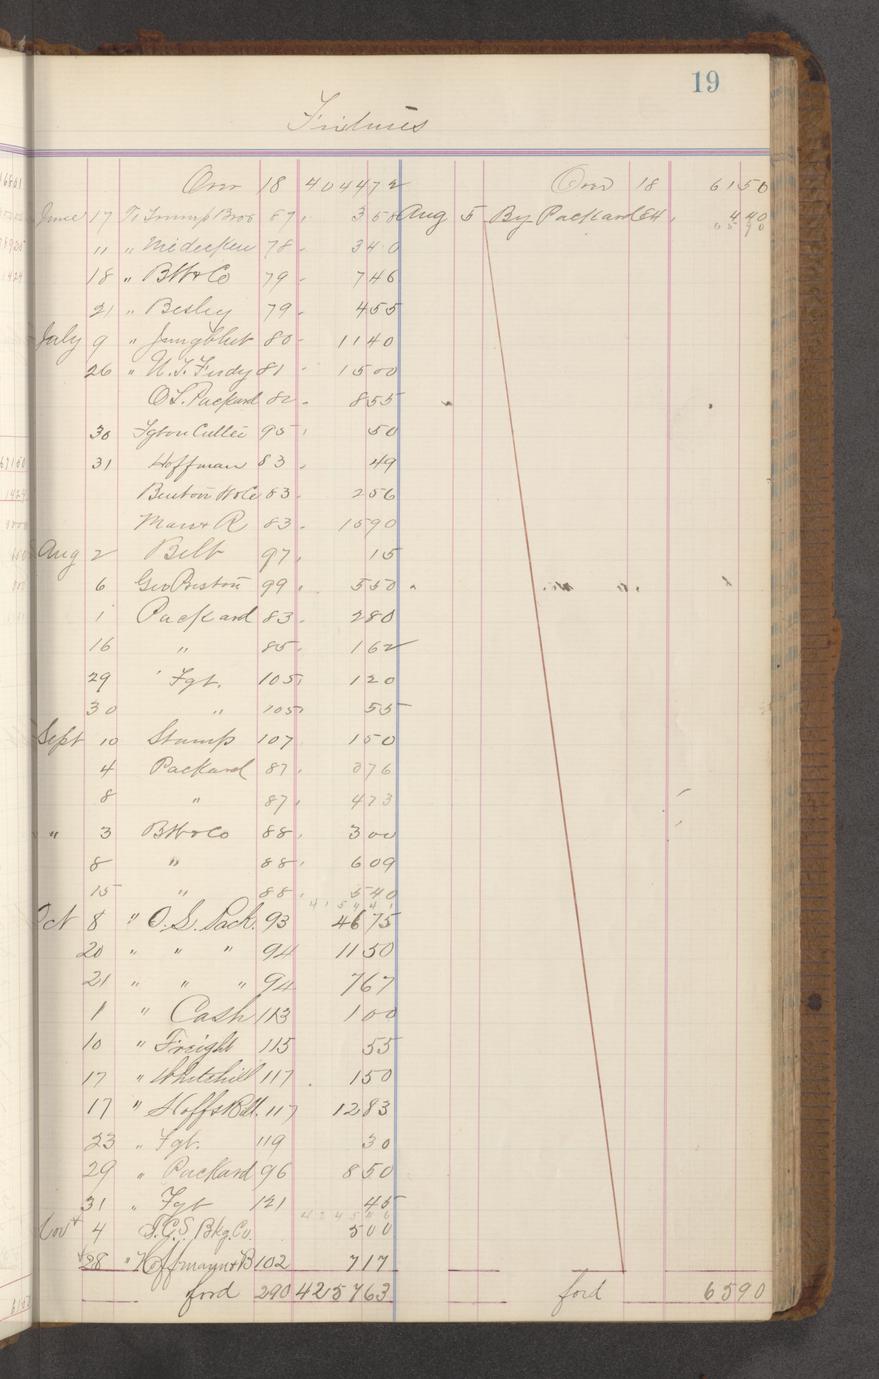 19
Fixtures
Over 18 4044 72 Over 18 61 50
June 17 To Trump Bros 87 3 50 Aug 5 By Packard 84 4 40
65 90
" " Niedecken 78 3 40
18 " BH & Co 79 7 46
21 " Besley 79 4 55
July 9 " Jungblut 80 11 40
26 " 81 15 00
O.L. Packard 82 8 55
30 Fgt on 95 50
31 Hoffman 83 49
83 2 56
83 15 90
Aug 2 Belt 97 15
6 Geo Preston 99 5 50
1 Packard 83 2 80
16 " 85 1 62
29 Fgt. 105 1 20
30 " 105 55
Sept 10 Stamp 107 1 50
4 Packard 87 3 76
8 " 87 4 73
" 3 BH & Co 88 3 00
8 " 88 6 09
15 " 88 5 40
Oct 8 " O.L. Pack. 93 46 75
20 " " " 94 11 50
21 " " " 94 7 67
1 " Cash 113 1 00
10 " Freight 115 55
17 " Whitehill 117 1 50
17 " Hoffs & Bill. 117 12 83
23 " Fgt. 119 30
29 " Packard 96 8 50
31 " Fgt 121 45
Nov 4 Bkg. Co. 5 00
28 " Hoffmann & B 102 7 17
ford 290 4257 63 ford 65 90